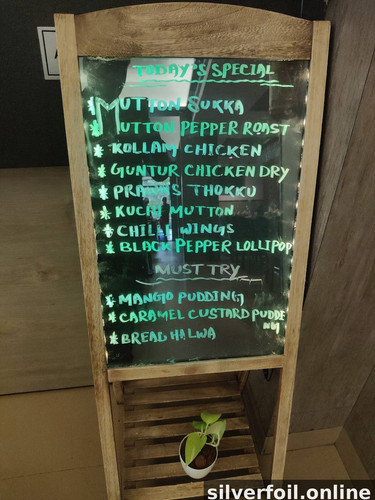 TODAY'S SPECIAL
* MUTTON SUKKA
* MUTTON PEPPER ROAST
* KOLLAM CHICKEN
* GUNTUR CHICKEN DRY
* PRAWNS THOKKU
* KUCHI MUTTON
* CHILLI WINGS
* BLACK PEPPER LOLLIPOP
MUST TRY
* MANGO PUDDING
* CARAMEL CUSTARD PUDDE
NG
* BREAD HALWA
silverfoil.online